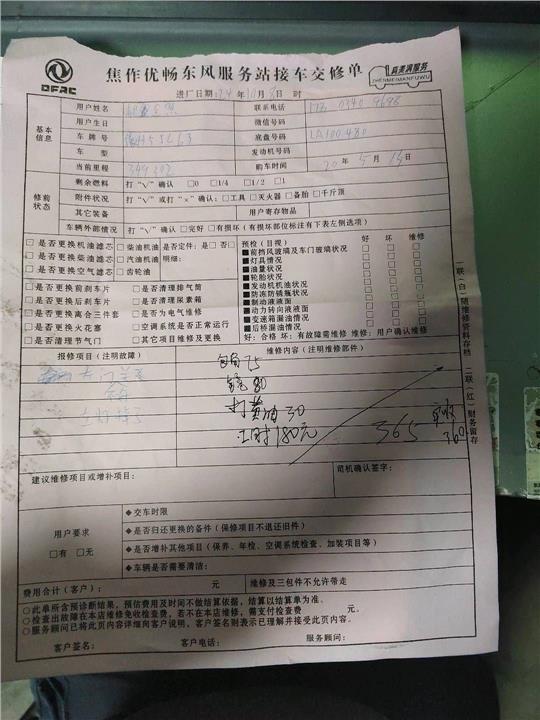 DFAC
焦作优畅东风服务站接车交修单
真美满服务
ZHENMEIMANFUWU
进厂日期:24年10月8日 时
基本信息
用户姓名 联系电话
用户生日 微信号码
车牌号 底盘号码 LA100480
车型 发动机号码
当前里程 349302 购车时间 20年5月15日
修前状态
剩余燃料 打“√”确认 □0 □1/4 □1/2 □1
附件状况 打“√”或打“×”确认:□工具 □灭火器 □备胎 □千斤顶
其它装备 用户寄存物品
车辆外部情况 打“√”确认 □完好 □有损坏(有损坏部位标注有下表左侧选项)
□是否更换机油滤芯 □柴油机油 是否定件:是 □否□
□是否更换柴油滤芯 □汽油机油 明细:
□是否更换空气滤芯 □齿轮油
□是否更换前刹车片 □是否清理排气筒
□是否更换后刹车片 □是否清理尿素箱
□是否更换离合三件套 □是否为电气维修
□是否更换火花塞 □空调系统是否正常运行
□是否清理节气门 □其它项目维修及更换
预检(目视) 好 坏 维修
■前挡风玻璃及车门玻璃状况 □ □ □
■灯具情况 □ □ □
■油量状况 □ □ □
■轮胎状况 □ □ □
■发动机机油状况 □ □ □
■防冻防锈瓶状况 □ □ □
■制动液液面 □ □ □
■动力转向液液面 □ □ □
■变速箱漏油情况 □ □ □
■后桥漏油情况 □ □ □
好:合格 坏:有故障需维修 维修:用户确认维修
报修项目(注明故障) 维修内容(注明维修部件)
75
80
打黄油30
工时180元
365
实收
360
建议维修项目或增补项目: 司机确认签字:
用户要求
□有 □无
◆交车时限
◆是否归还更换的备件(保修项目不退还旧件)
◆是否增补其他项目(保养、年检、空调系统检查、加装项目等)
◆车辆是否需要清洁:
费用合计(客户): 元 维修及三包件不允许带走
○此单所含预诊断结果,预估费用及时间不做结算依据,结算以结算单为准。
○检查出故障在本店维修免收检查费,若不在本店维修,需支付检查费 元。
○服务顾问已将此页内容详细向客户说明,客户签名则表示已理解并接受此页内容。
客户签名: 客户电话: 服务顾问:
一联(白)随维修资料存档 二联(红)财务留存